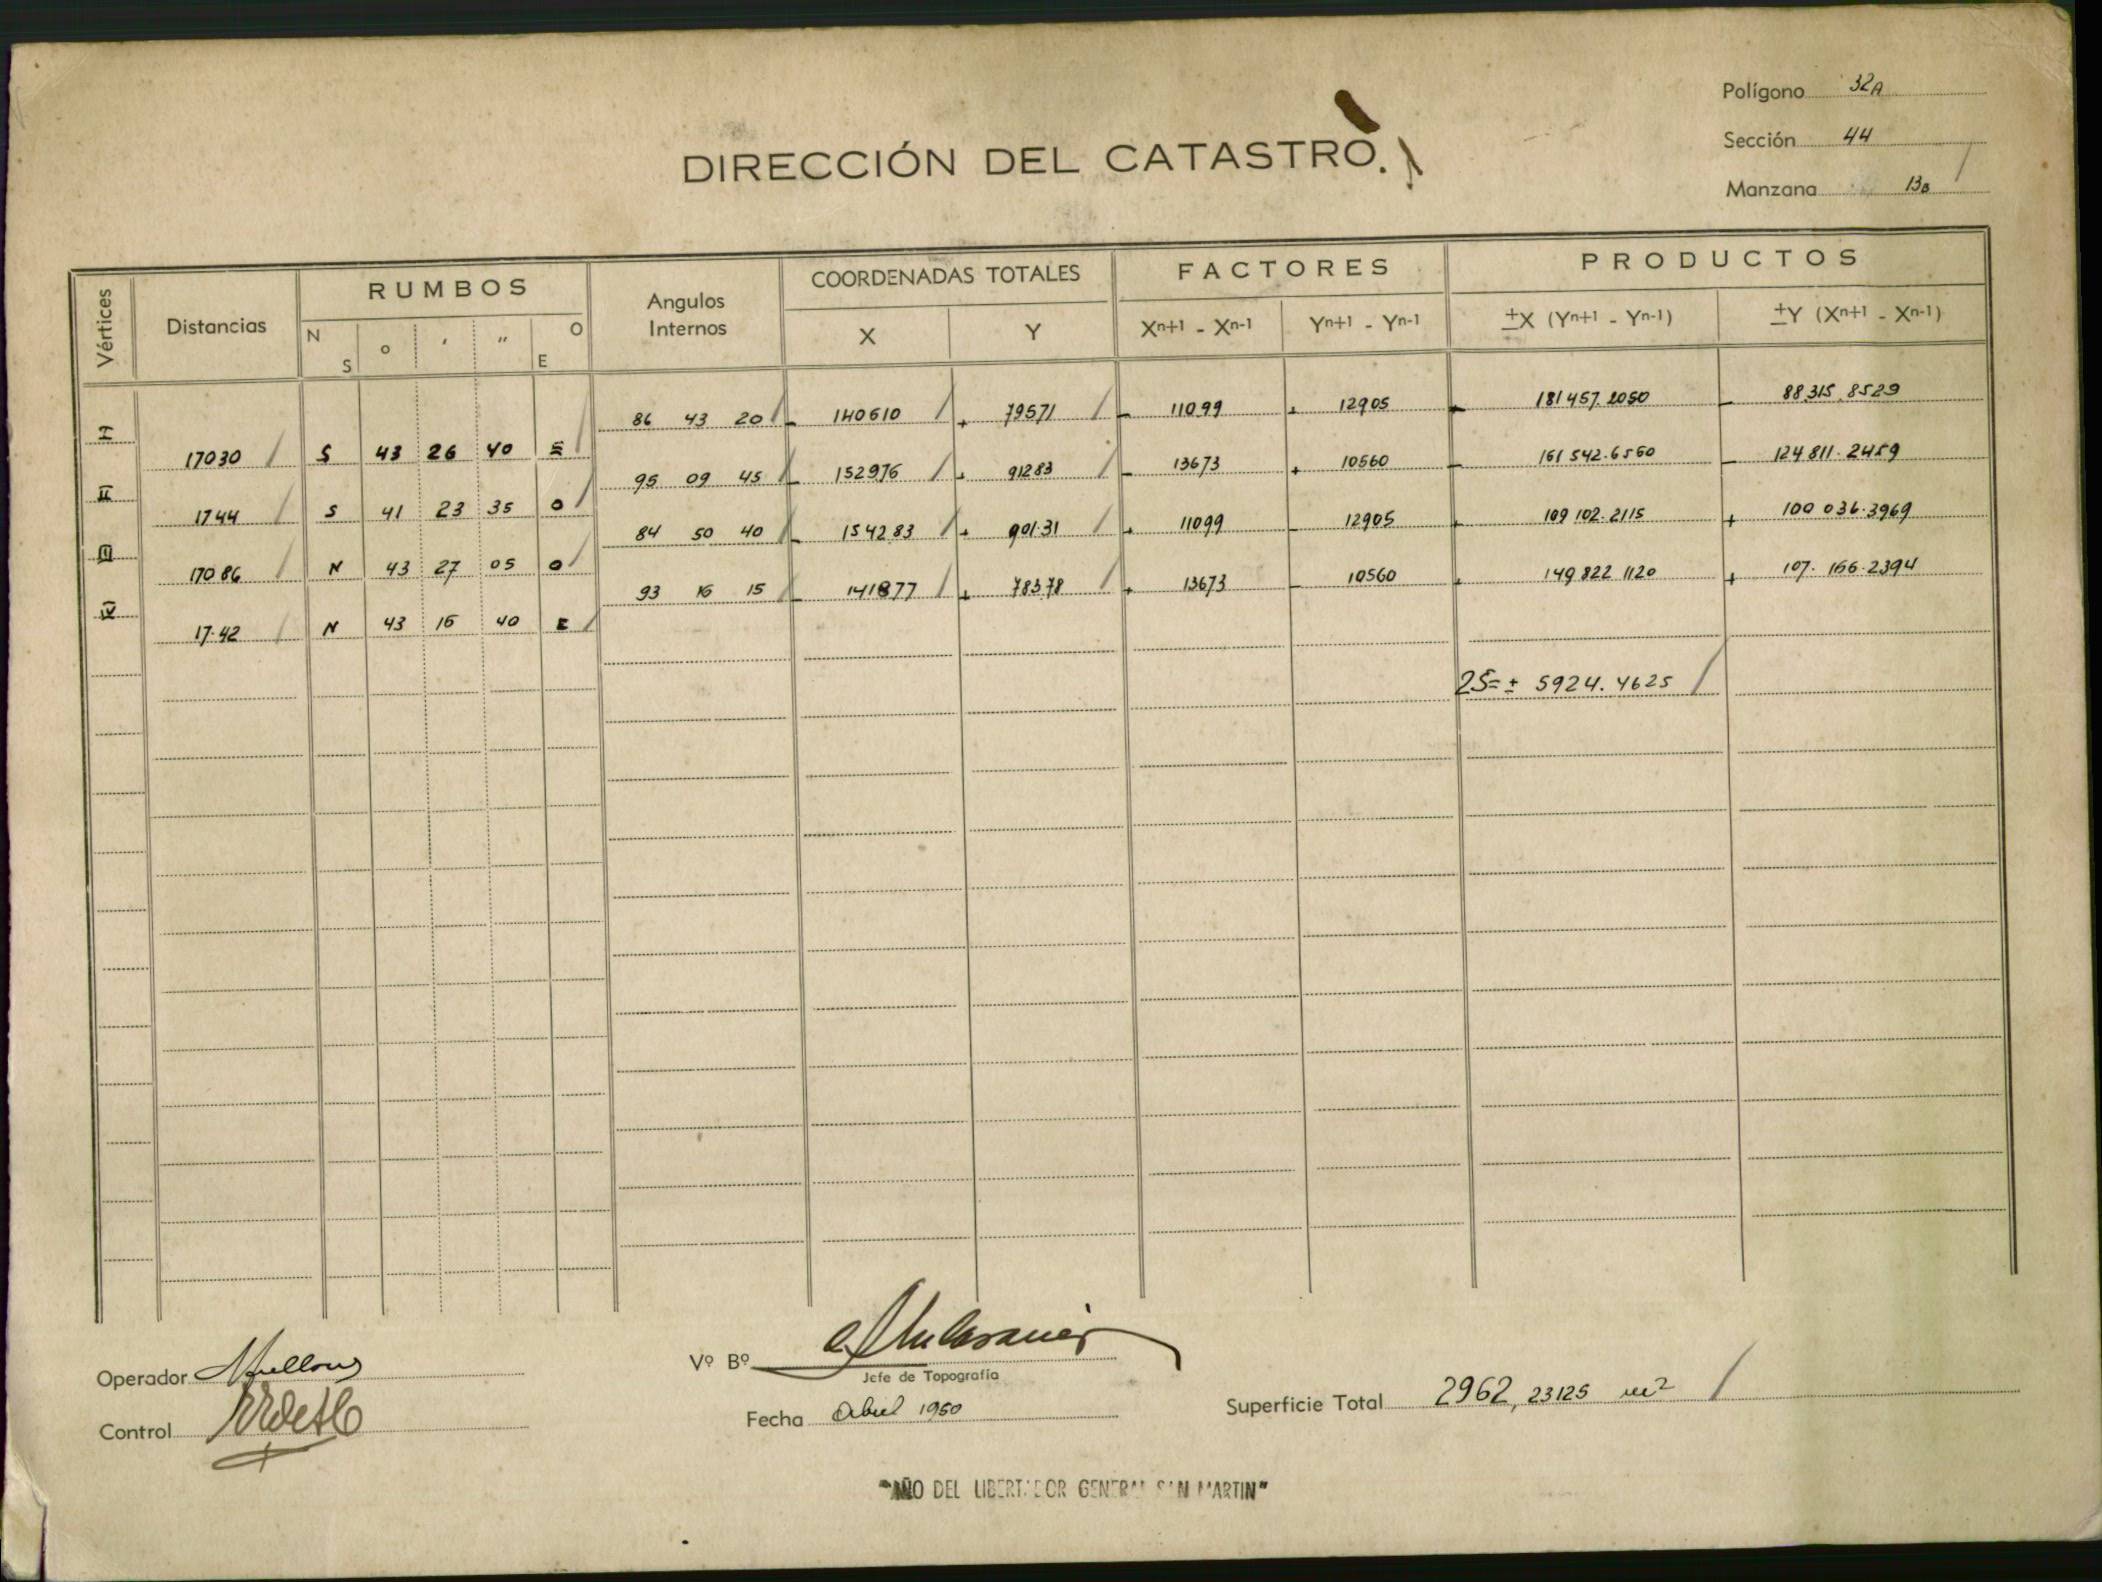 Polígono 32A
Sección 44
Manzana 13B
DIRECCIÓN DEL CATASTRO.
Vértices Distancias RUMBOS Angulos Internos COORDENADAS TOTALES FACTORES PRODUCTOS
N S ° ' " O E X Y Xn+1 - Xn-1 Yn+1 - Yn-1 ±X (Yn+1 - Yn-1) ±Y (Xn+1 - Xn-1)
86 43 20 - 140610 + 79571 - 11099 + 12905 - 181457.2050 - 88315.8529
17030 S 43 26 40 E
95 09 45 - 152976 + 91283 - 13673 + 10560 - 161542.6560 - 124811.2459
1744 S 41 23 35 O
84 50 40 - 154283 + 901.31 + 11099 - 12905 + 109102.2115 + 100036.3969
17086 N 43 27 05 O
93 16 15 - 141877 + 78378 + 13673 - 10560 + 149822 1120 + 107.166.2394
17.42 N 43 16 40 E
2S=± 5924.4625
Operador
Control
Vº Bº
Jefe de Topografía
Fecha Abril 1950
Superficie Total 2962,23125 m²
"AÑO DEL LIBERTADOR GENERAL SAN MARTIN"